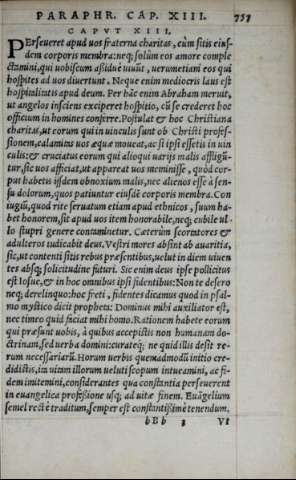 PARAPHR. CAP. XIII. 757
CAPVT XIII.
PErseueret apud uos fraterna charitas, cùm sitis eius-
dem corporis membra: neq; solùm eos amore comple
ctamini, qui uobiscum aßiduè uiuũt, uerumetiam eos qui
hospites ad uos diuertunt. Neque enim mediocris laus est
hospitalitatis apud deum. Per hãc enim Abraham meruit,
ut angelos insciens exciperet hospitio, cũ se crederet hoc
officium in homines conferre. Postulat & hoc Christiana
charitas, ut eorum qui in uinculis sunt ob Christi profes-
sionem, calamitas uos æquà moueat, ac si ipsi essetis in uin
culis: & cruciatus eorum qui alioqui uarijs malis affligũ-
tur, sic uos afficiat, ut appareat uos meminisse, quòd cor-
pus habetis ijsdem obnoxium malis, nec alienos esse à sen-
su dolorum, quos patiuntur eiusdẽ corporis membra. Con
iugiũ, quod rite seruatum etiam apud ethnicos, suum ha-
bet honorem, sit apud uos item honorabile, neq; cubile ul-
lo stupri genere contaminetur. Cæterùm scortatores &
adulteros iudicabit deus. Vestri mores absint ab auaritia,
sic, ut contenti sitis rebus præsentibus, uelut in diem uiuen
tes absq; solicitudine futuri. Sic enim deus ipse pollicitus
est Iosue, & in hoc omnibus ipsi fidentibus: Non te desero
neq; derelinquo: hoc freti, fidentes dicamus quod in psal-
mo mystico dicit propheta: Dominus mihi auxiliator est,
nec timeo quid faciat mihi homo. Rationem habete eorum
qui præsunt uobis, à quibus accepistis non humanam do-
ctrinam, sed uerba domini: curateq; ne quid illis desit re-
rum necessariarũ. Horum uerbis quemadmodũ initio cre-
didistis, ita uitam illorum ueluti scopum intueamini, ac fi-
dem imitemini, considerantes qua constantia perseuerent
in euangelica professione usq; ad uitæ finem. Euãgelium
semel recte traditum, semper est constantißimè tenendum.
bBb 3 Vt